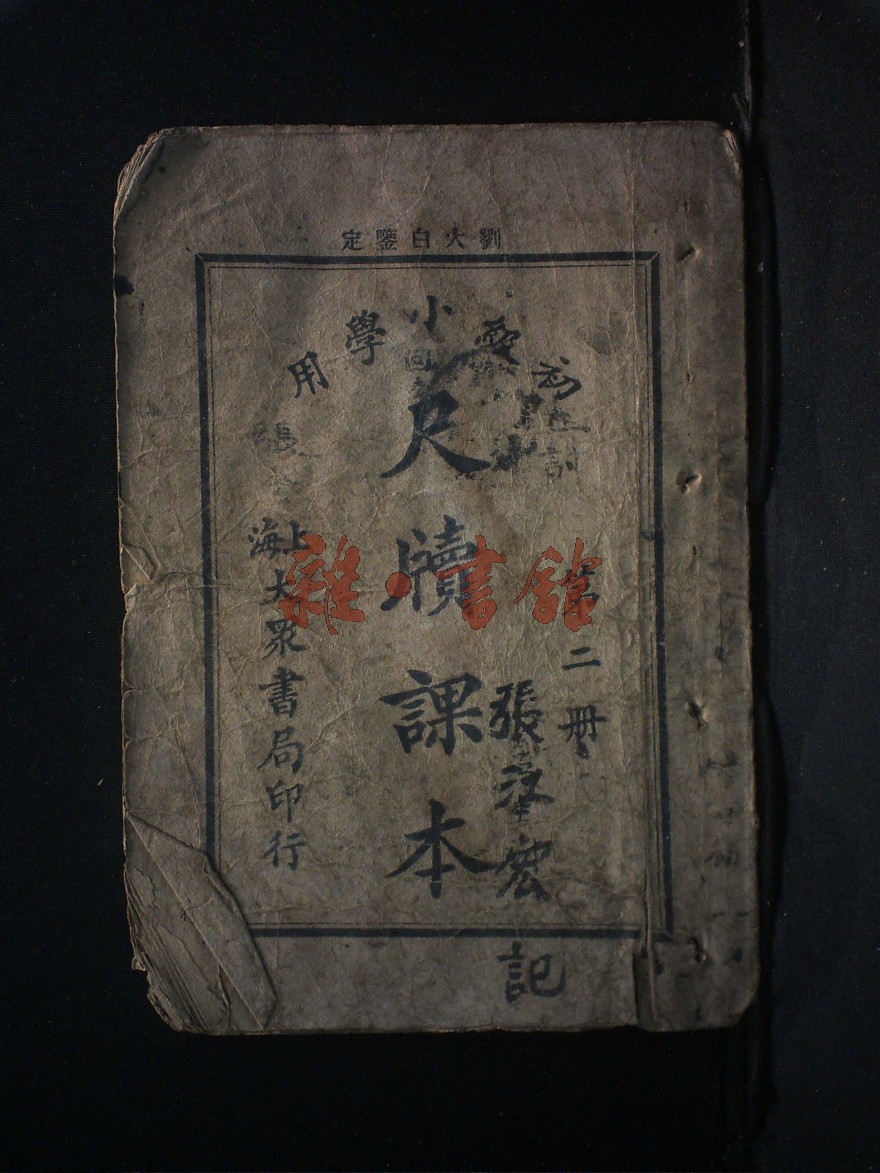 劉大白鑒定
初要小學用
第二冊
尺牘課本
上海大眾書局印行
張
宏記
雜·書館